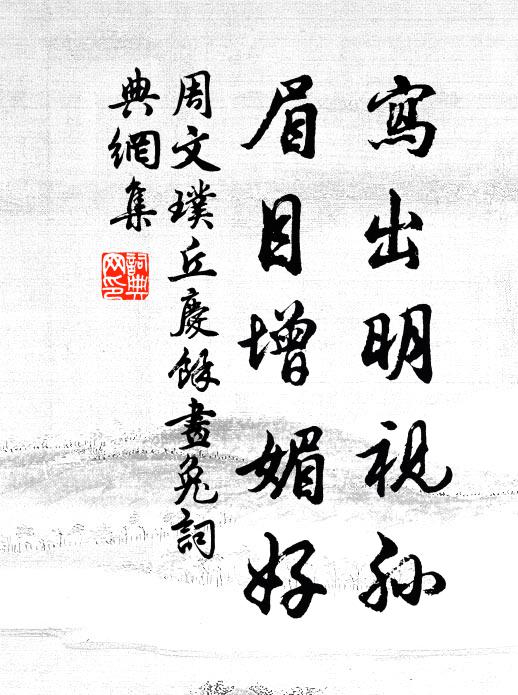 寫出明視孫
眉目增媚好
周文璞丘慶餘畫兔詞
典網集
詞典
网印